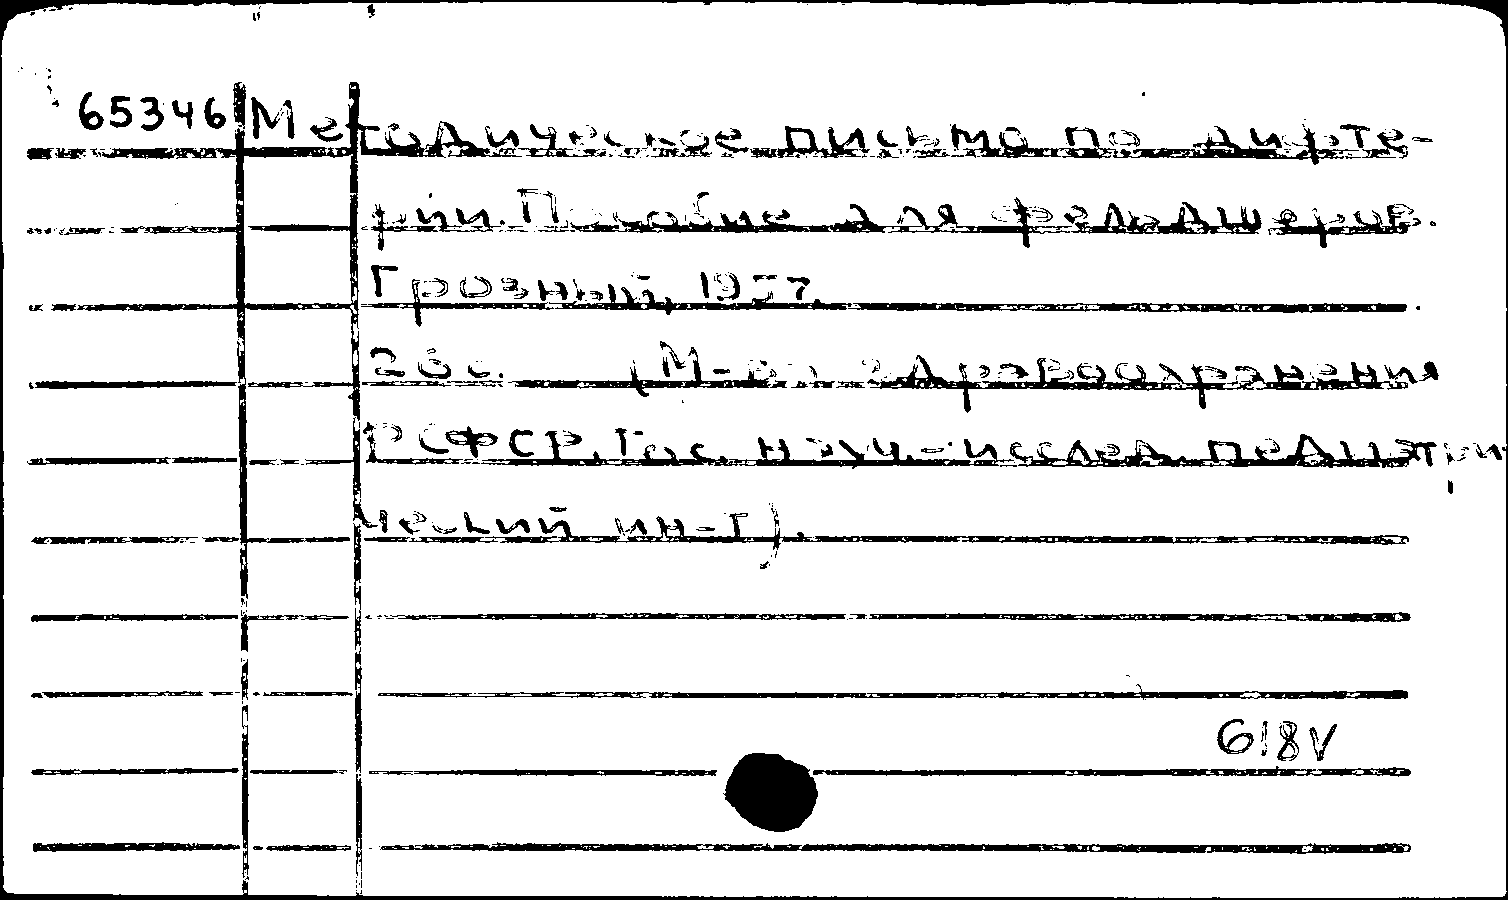 65346 Методическое письмо по дифте-
рии. Пособие для фельдшеров.
Грозный, 1957.
26 с. (М-во здравоохранения
РСФСР. Гос. науч.-исслед. педиатри-
ческий ин-т).
618V